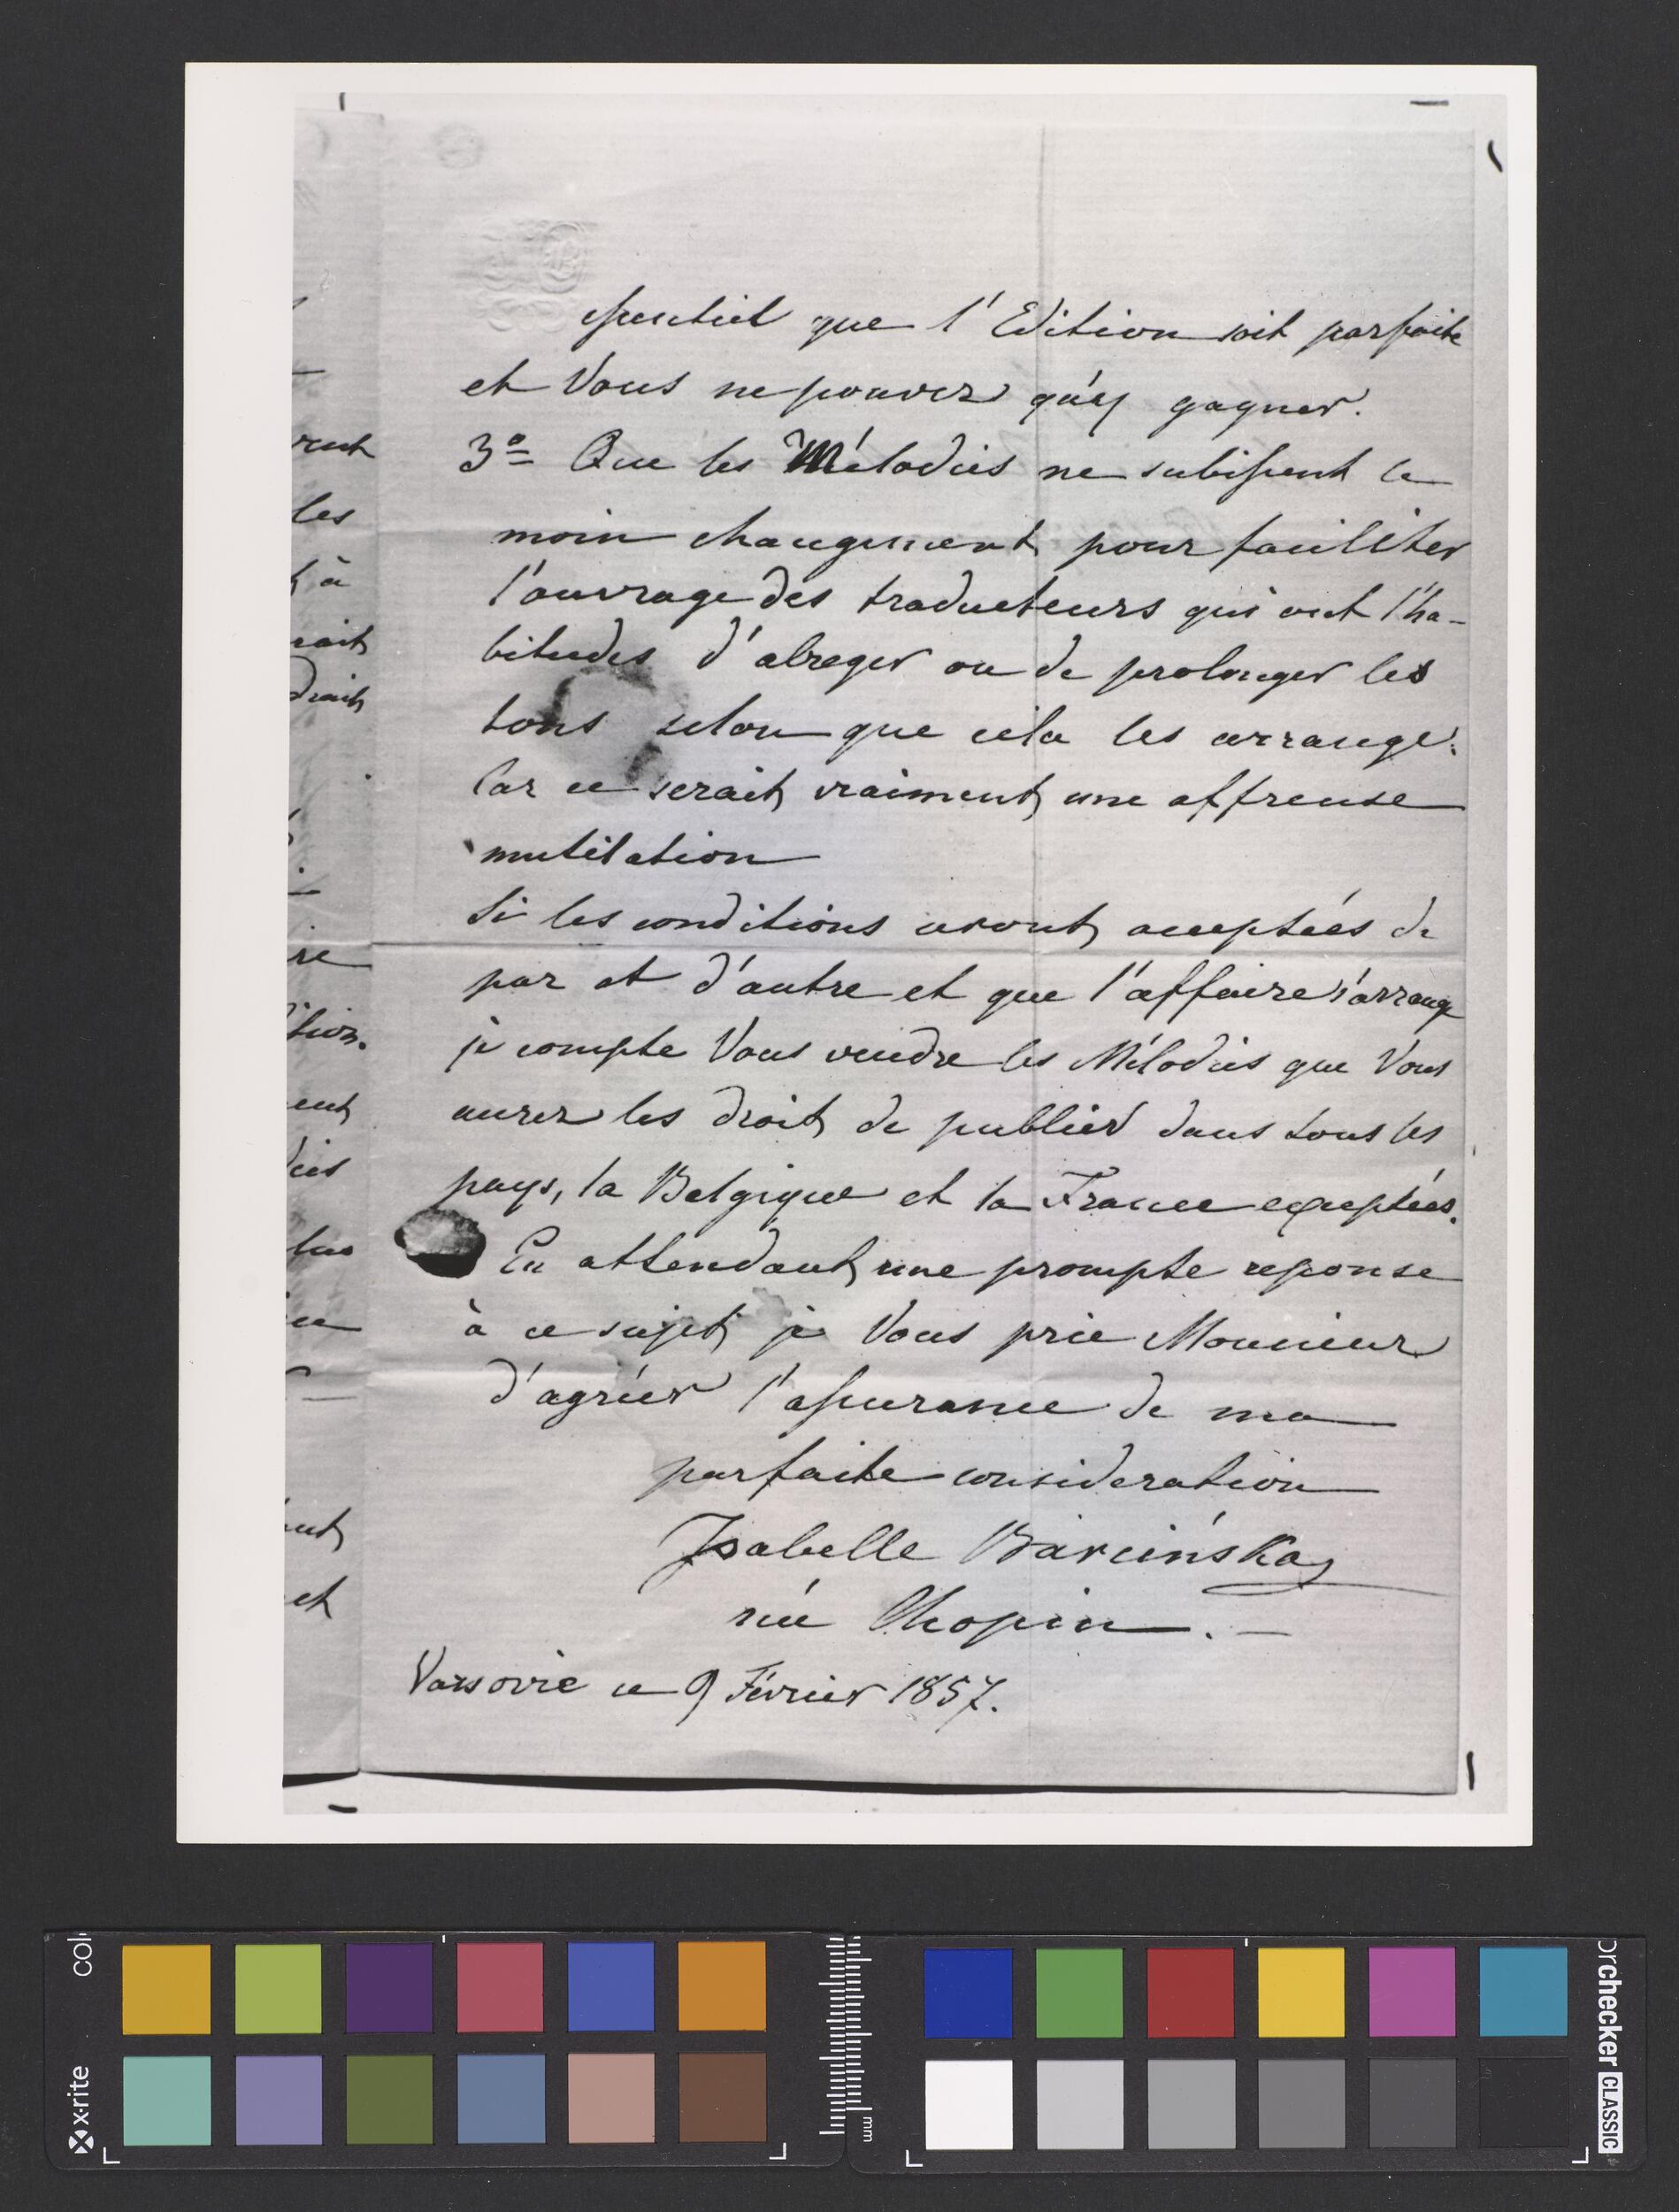 essentiel que l'Edition soit parfaite
et Vous ne pouvez qu'y gagner.
3º Que les Mélodies ne subissent le
moin changement pour faciliter
l'ouvrage des traducteurs qui ont l'ha-
bitudes d'abreger ou de prolonger les
tons selon que cela les arrange.
Car ce serait vraiment une affreuse
mutilation
Si les conditions seront acceptées de
par et d'autre et que l'affaire s'arrange
je compte Vous vendre les Mélodies que Vous
aurez les droit de publier dans tous les
pays, la Belgique et la France exceptées.
En attendant une prompte reponse
à ce sujet je Vous prie Monsieur
d'agréer l'assurance de ma
parfaite consideration
Isabelle Barcińska
née Chopin. —
Varsovie ce 9 Février 1857.
les
à
et
x-rite
colorchecker CLASSIC
mm